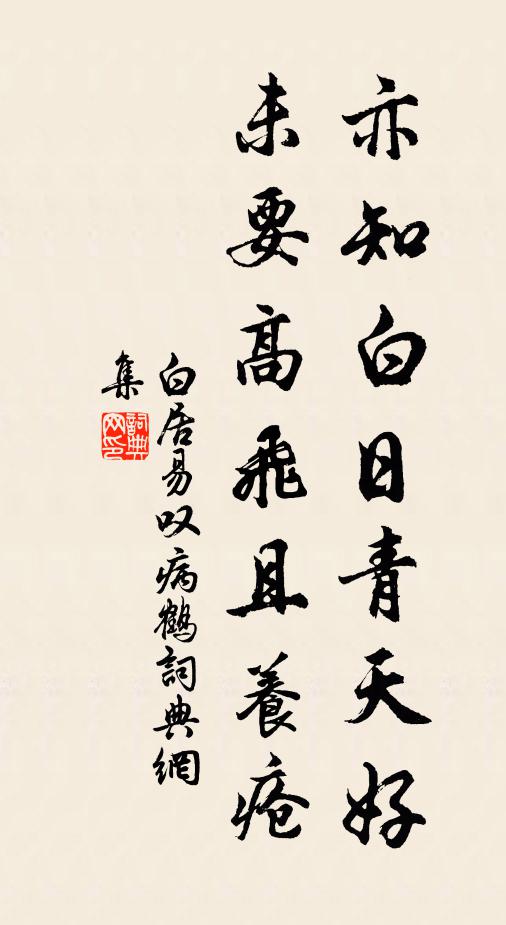 亦知白日青天好
未要高飛且養疮
白居易叹病鶴詞典網
集
詞典
网印